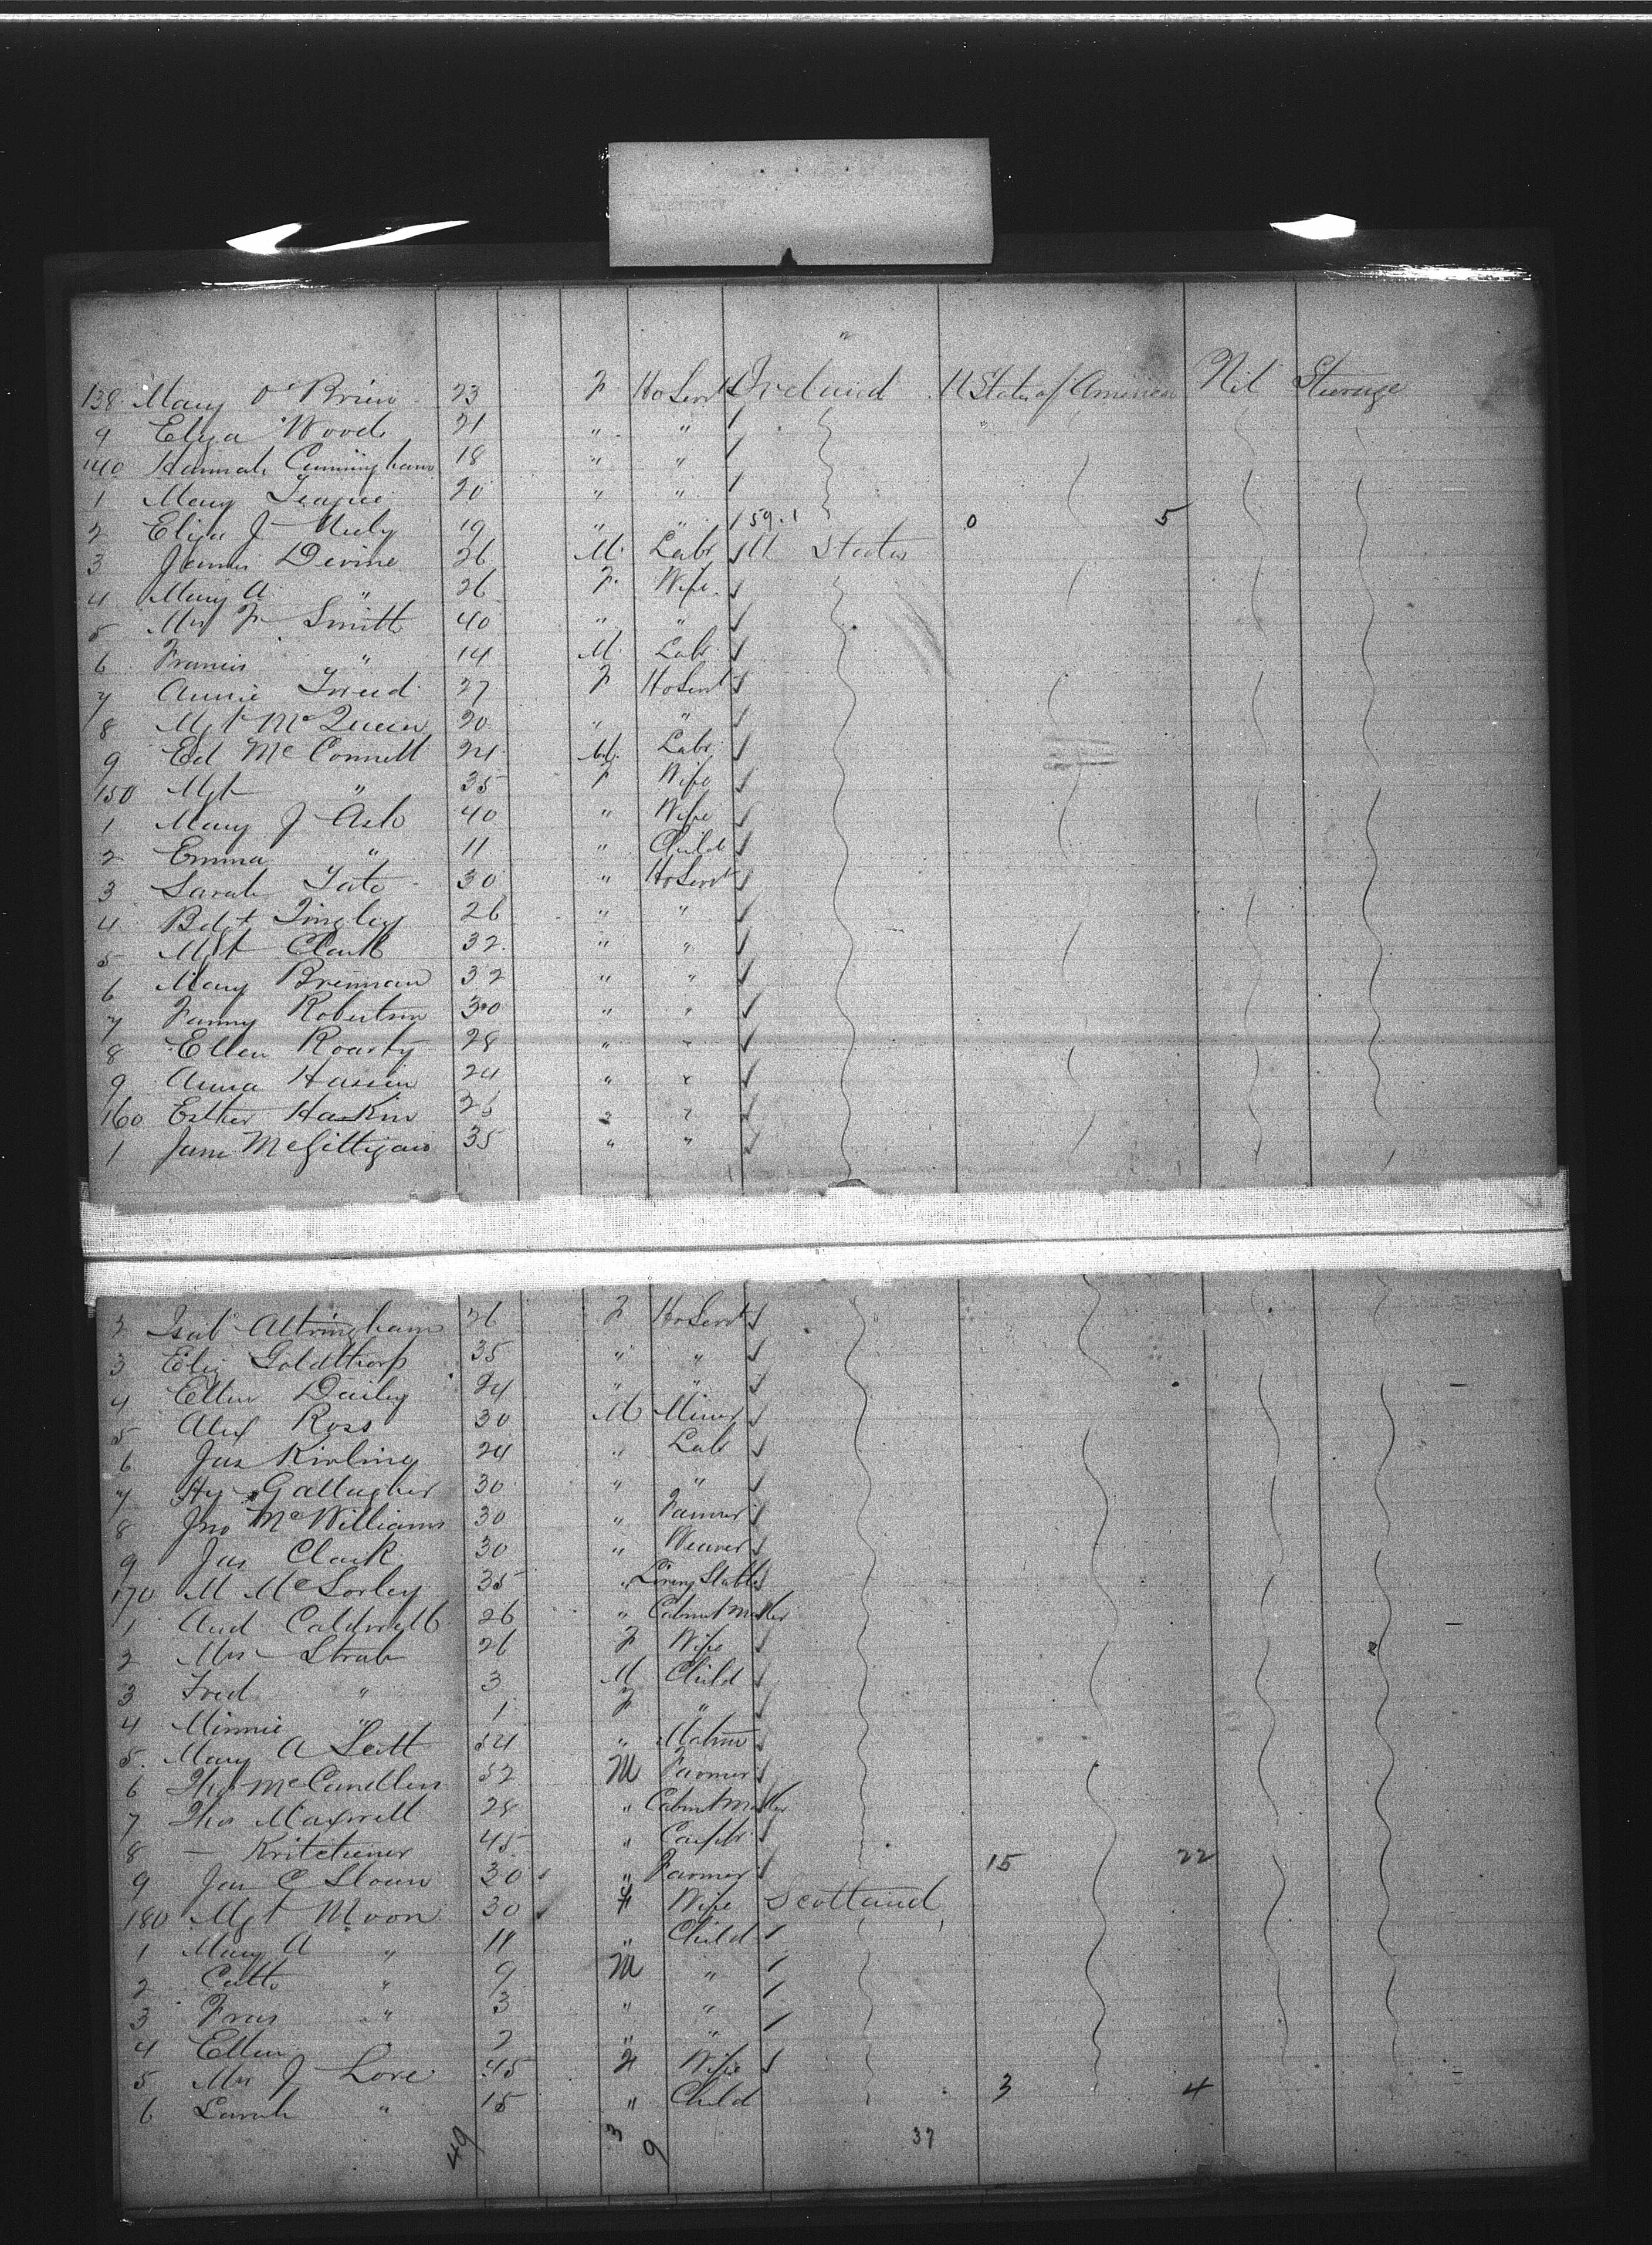 138 Mary O'Brien 23 F HoServt Ireland U States of America Nil Steerage
9 Eliza Woods 21 " " "
140 Hannah Cunningham 18 " "
1 Mary Teague 20 " "
2 Eliza J 19 " " 59.1 0 5
3 James Devine 26 M Labr U States
4 Mary A " 26 F Wife
5 Mrs Fr Smith 40 " "
6 Francis " 14 M Labr
7 Annie 27 F HoServt
8 Mgt McQueen 20 " "
9 Ed McConnell 24 M Labr
150 Mgt " 35 F Wife
1 Mary J Ash 40 " Wife
2 Emma " 11 " Child
3 Sarah Tate 30 " HoServt
4 Bdgt Tingley 26 " "
5 Mgt Clark 32 " "
6 Mary Brennan 32 " "
7 Fanny Robertson 30 " "
8 Ellen Roarty 28 " "
9 Anna 24 " "
160 Esther Haskin " "
1 Jane McGettigan 35 " "
2 Isab Altringham 26 F HoServt
3 Eliz Goldthorp 35 " "
4 Ellen Dailey 24 " "
5 Alex Ross 30 M Miner
6 Jas 24 " Labr
7 Hy Gallagher 30 " "
8 Jno McWilliams 30 " Farmer
9 Jas Clark 30 " Weaver
170 M McSorley 35 " Livery Stable
1 And Caldwell 26 " Cabinet Maker
2 Mrs Strab 26 F Wife
3 Fred " 3 M Child
4 Minnie " 1 F "
5 Mary A Scott 54 " Matron
6 Thos McCandless 52 M Farmer
7 Thos Maxwell 28 " Cabinet Maker
8 — Kritchener 45 " Carptr
9 Jas C Sloan 30 " Farmer 15 22
180 Mgt Moon 30 F Wife Scotland
1 Mary A " 11 " Child
2 " 9 M "
3 Fras " 3 " "
4 Ellen 2 " "
5 Mrs J Love 45 F Wife
6 Sarah " 15 " Child 3 4
49 3 9 37